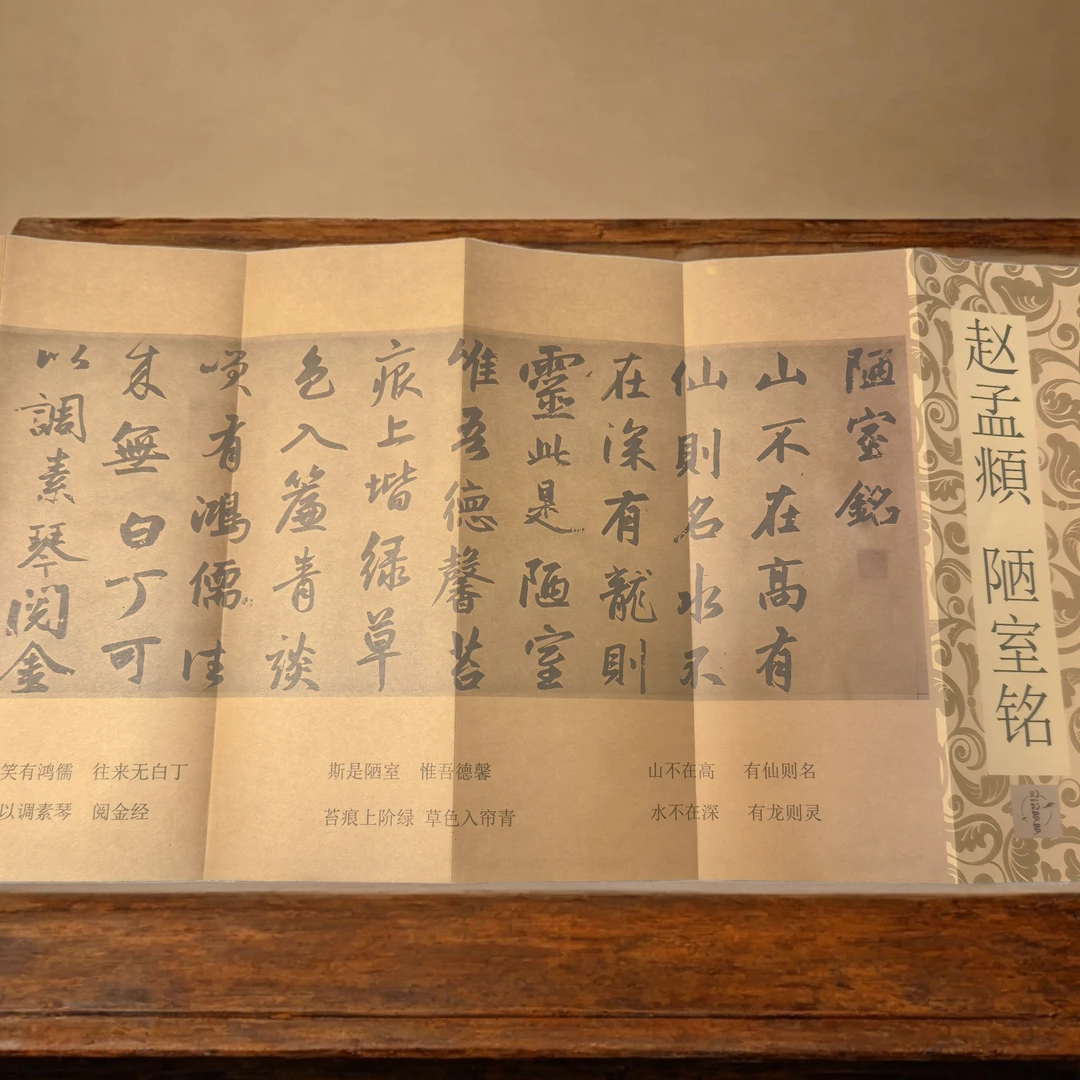 赵孟頫 陋室铭
陋室銘
山不在高有
仙則名水不
在深有龍則
靈此是陋室
惟吾德馨苔
痕上堦緑草
色入簾青談
咲有鴻儒往
来無白丁可
以調素琴閲金
山不在高 有仙则名
水不在深 有龙则灵
斯是陋室 惟吾德馨
苔痕上阶绿 草色入帘青
笑有鸿儒 往来无白丁
以调素琴 阅金经